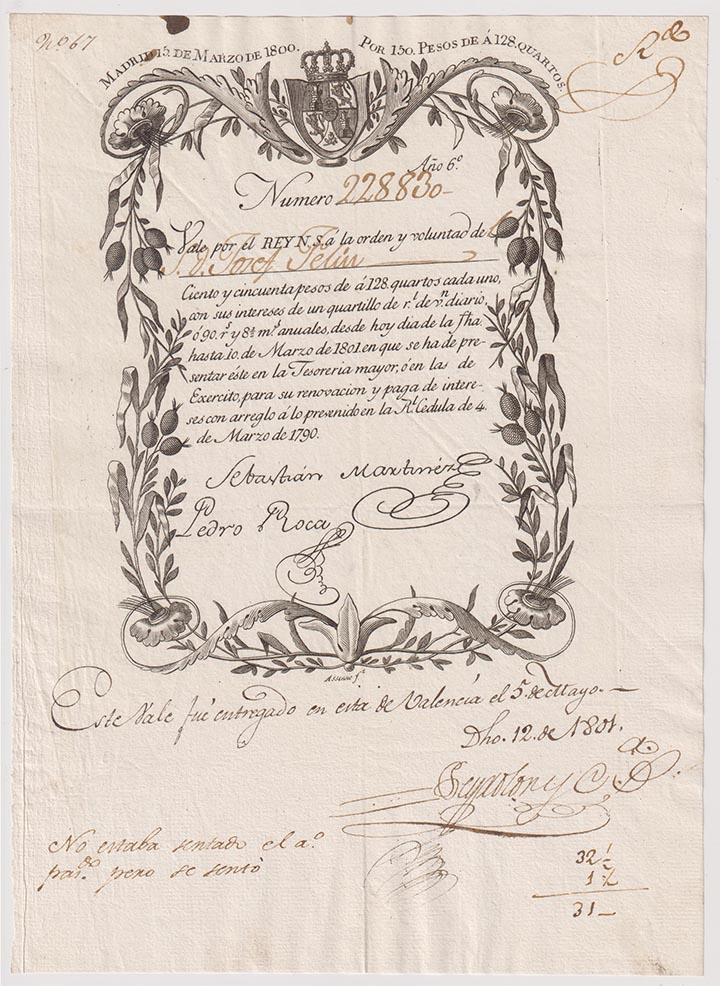 Nº 67
MADRID 15. DE MARZO DE 1800. POR 150. PESOS DE Á 128. QUARTOS.
Año 6º
Numero 228830
Vale por el REY N. S. a la orden y voluntad de
S. D. Josef Feliu
Ciento y cincuenta pesos de á 128. quartos cada uno,
con sus intereses de un quartillo de r.ˡ de v.ⁿ diario,
ó 90. r.ˢ y 8½ m.ˢ anuales, desde hoy dia de la fha.
hasta 10. de Marzo de 1801. en que se ha de pre-
sentar éste en la Tesoreria mayor, ó en las de
Exercito, para su renovacion y paga de intere-
ses con arreglo á lo prevenido en la R.ˡ Cedula de 4.
de Marzo de 1790.
Sebastián Martinez
Pedro Roca
Este Vale fué entregado en esta de Valencia el 5. de Mayo.
Dho. 12. de 1801.
No estaba sentado el a.º
pas.ᵈᵒ pero se sentò
32½
1½
31